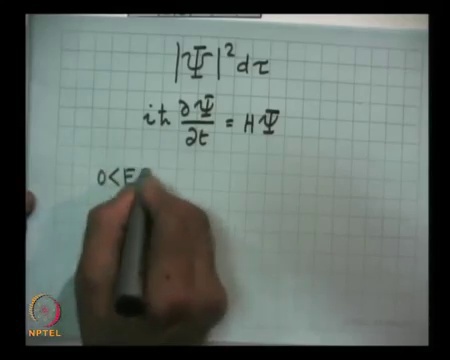 |Ψ|² dτ
iħ ∂Ψ/∂t = HΨ
0<E
NPTEL